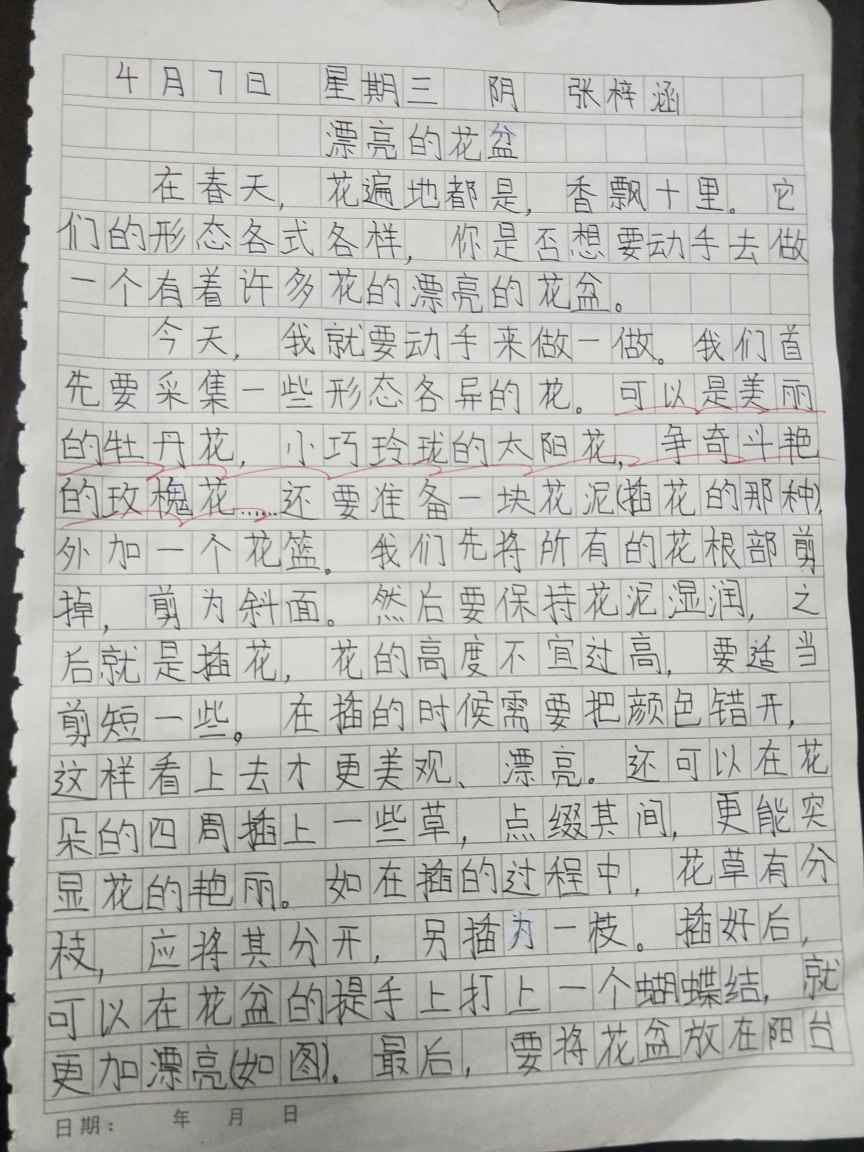 4月7日 星期三 阴 张梓涵
漂亮的花盆
在春天，花遍地都是，香飘十里。它
们的形态各式各样，你是否想要动手去做
一个有着许多花的漂亮的花盆。
今天，我就要动手来做一做。我们首
先要采集一些形态各异的花。可以是美丽
的牡丹花，小巧玲珑的太阳花，争奇斗艳
的玫槐花……还要准备一块花泥(插花的那种),
外加一个花篮。我们先将所有的花根部剪
掉，剪为斜面。然后要保持花泥湿润，之
后就是插花，花的高度不宜过高，要适当
剪短一些。在插的时候需要把颜色错开，
这样看上去才更美观、漂亮。还可以在花
朵的四周插上一些草，点缀其间，更能突
显花的艳丽。如在插的过程中，花草有分
枝，应将其分开，另插为一枝。插好后，
可以在花盆的提手上打上一个蝴蝶结，就
更加漂亮(如图)。最后，要将花盆放在阳台
日期： 年 月 日